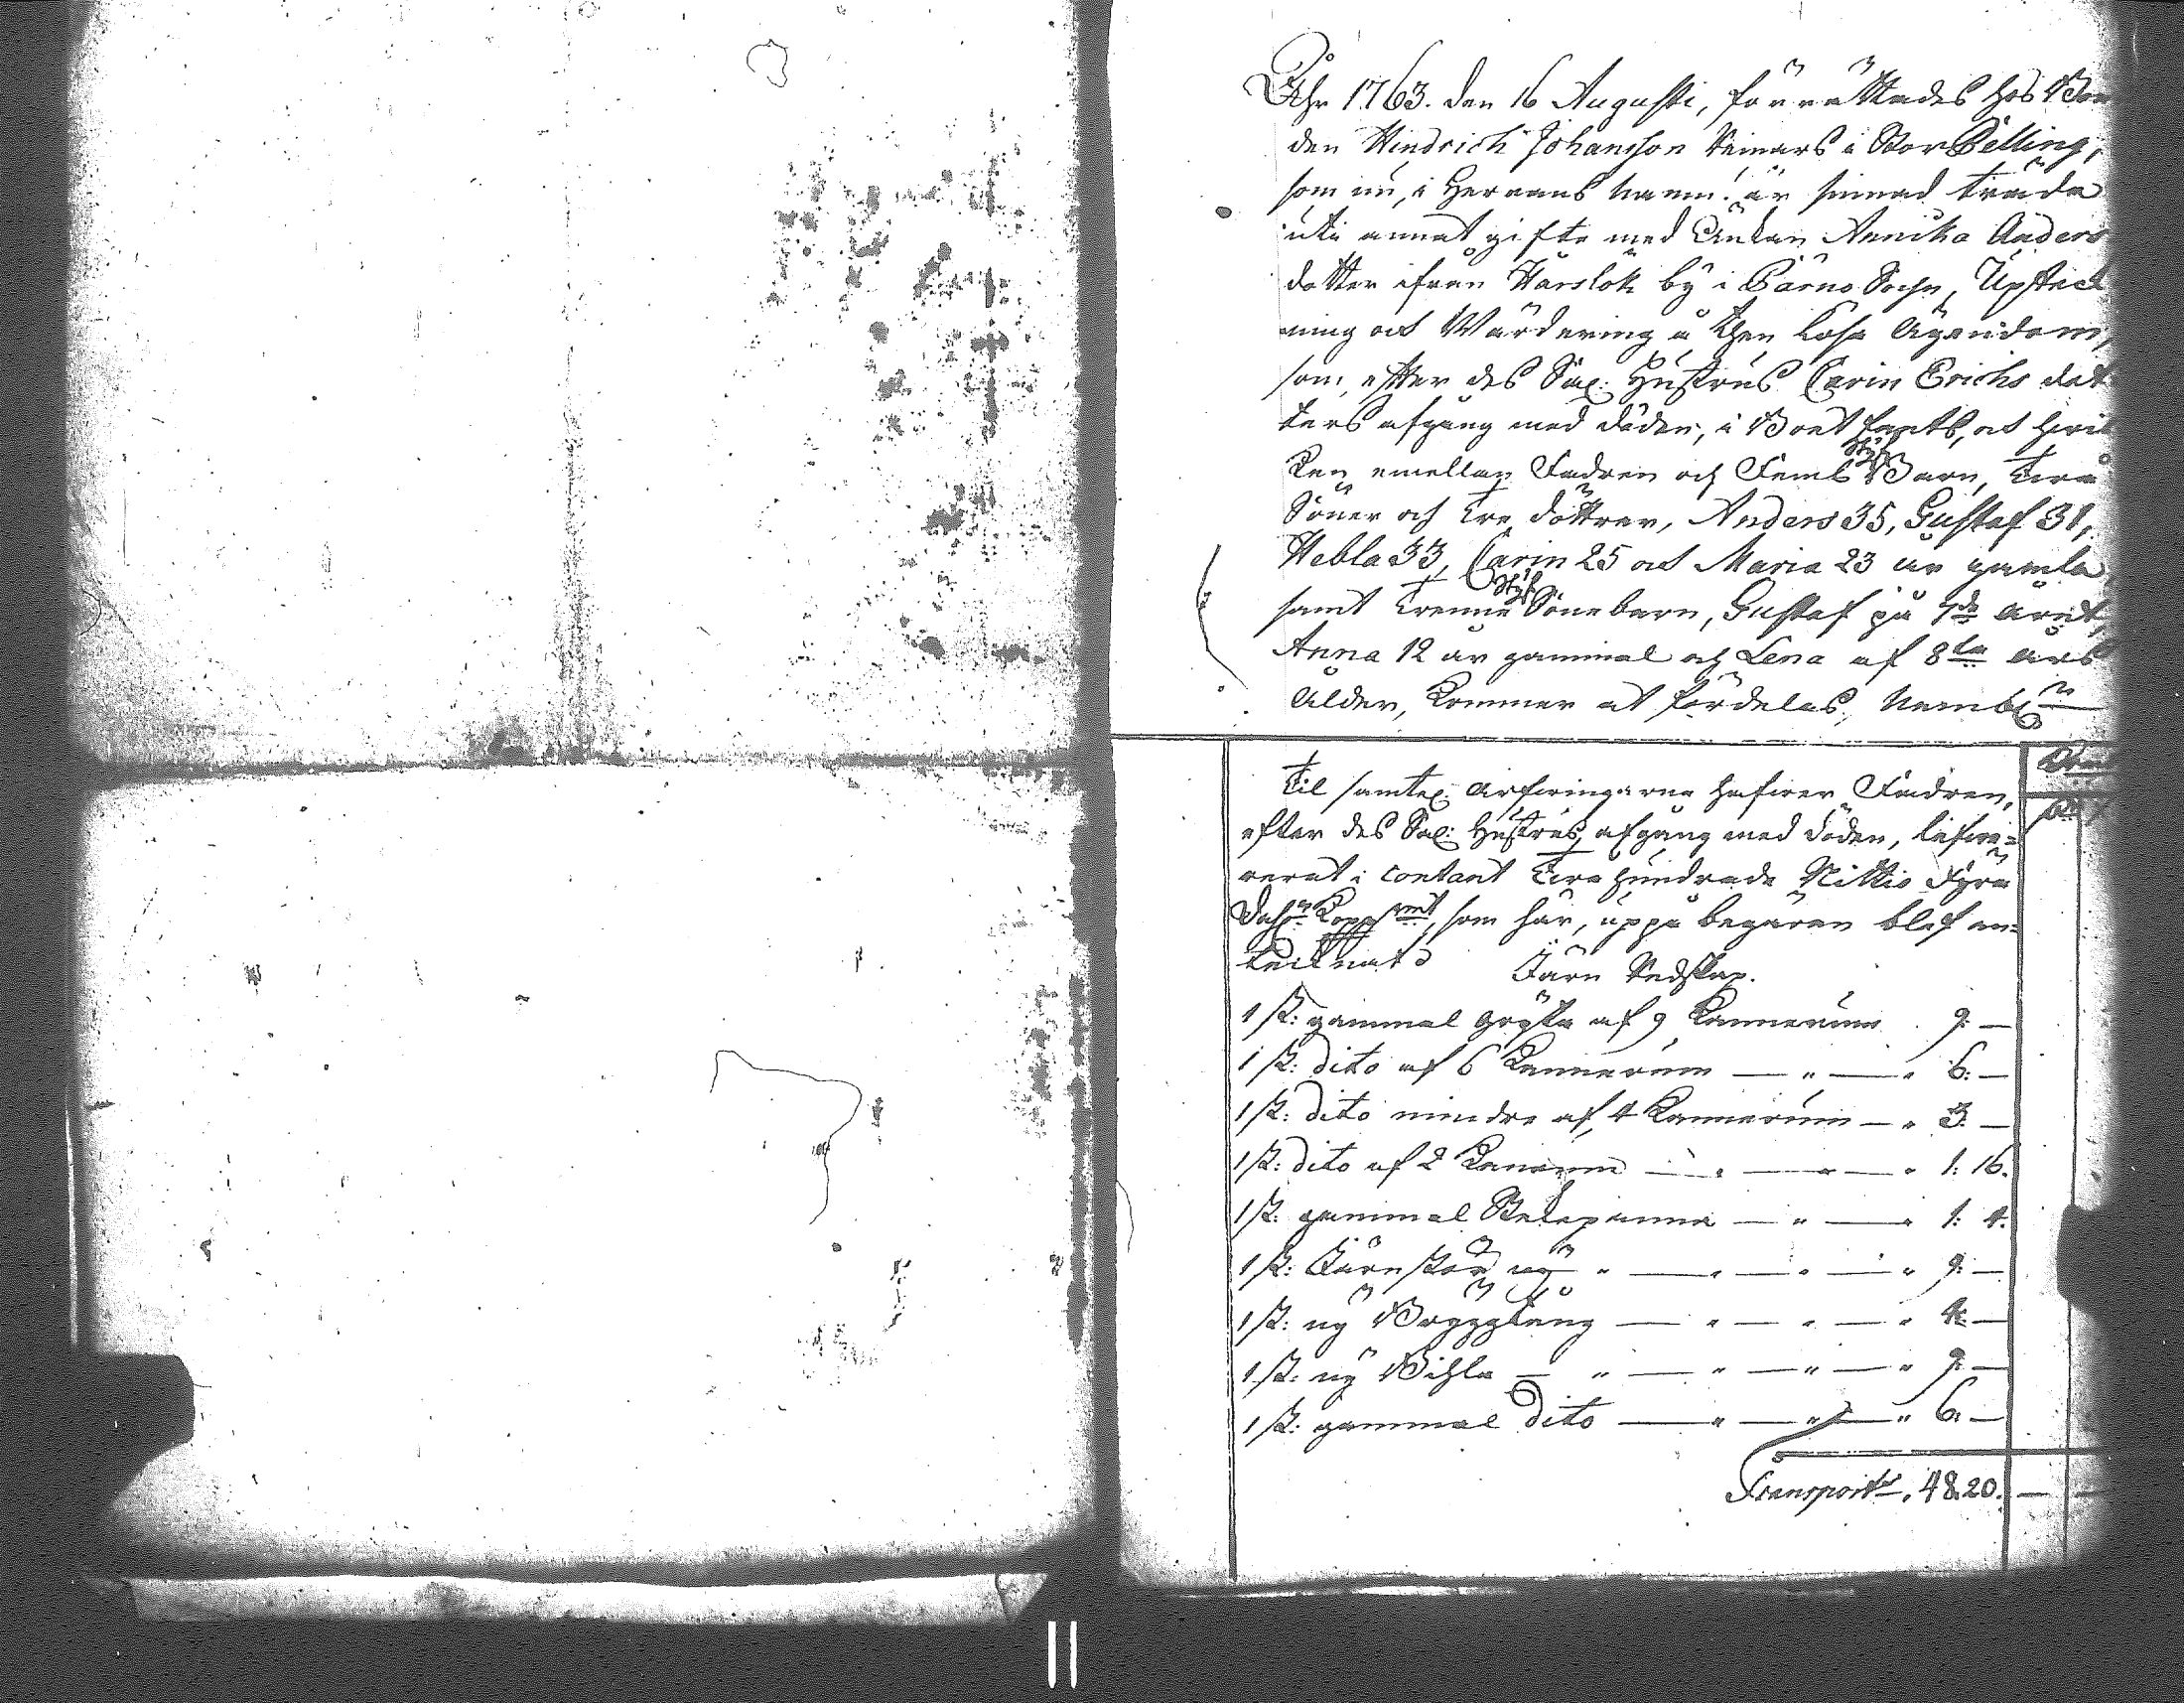 Åhr 1763. den 16 Augusti, förrättades hos Bon
den Hindrich Johansson Reinars i Stor Pelling,
som nu, i Herrans namn! är sinnad träda
uti annat gifte med Enkan Annika Anders
dotter ifrån Wärslök by i Pärno Sochn, Upteck
ning och Wärdering å then lösa Ägendom,
som, efter des Sal: Hustrus Carin Erichs dot
ters afgång med döden, i Boet fants, och hvil
ken emellan Fadren och Fem St: Barn, Två
Söner och Tre döttrar, Anders 35, Gustaf 31,
Hebla 33, Carin 25 och Maria 23 år gamla,
samt Trenne St: Sönebarn, Gustaf på 7de året,
Anna 12 år gammal och Lena af 8ta års
ålder, kommer at fördelas, Nembl:n
Til samtel: arfvingarne hafver Fadren,
efter des Sal: Hustrus afgång med döden, lefve-
rerat i contant Två hundrade Nittio Fyra
Dahl:r Kopp:mt, som här, uppå begäran blef an-
tecknat
Järn Redskap.
1 st: gammal gryta af 9 kannerum 9. —
1 st: dito af 6 kannerum — " — " 6: —
1 st: dito mindre af 4 kannerum — " 3. —
1 st: dito af 2 kannrum — " — " — " 1: 16.
1 st: gammal Stekepanna — " — " 1: 4.
1 st: Järnstör ny " — " — " — " 9: —
1 st: ny Bryggtång — " — " — " 4: —
1 st: ny Bihla — " — " — " — " 9: —
1 st: gammal dito — " — " — " 6: —
Transport. 48.20. — —